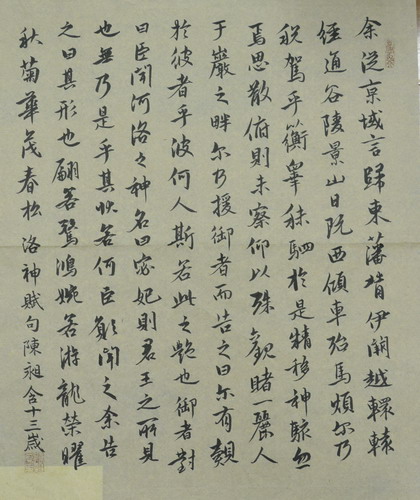 余從京域言歸東藩背伊闕越轘轅
經通谷陵景山日既西傾車殆馬煩尔乃
税駕乎蘅皋秣駟於是精移神駭忽
焉思散俯則未察仰以殊觀睹一麗人
于巖之畔尔乃援御者而告之曰尔有覿
於彼者乎彼何人斯若此之艷也御者對
曰臣聞河洛之神名曰宓妃則君王之所見
也無乃是乎其狀若何臣願聞之余告
之曰其形也翩若驚鴻婉若游龍榮曜
秋菊華茂春松 洛神賦句陳昶含十三歲